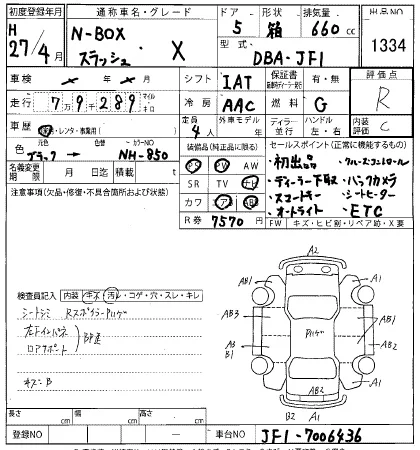 初度登録年月 通称車名・グレード ドア 形状 排気量 出品NO
H 27/4月 N-BOX スラッシュ X 5 箱 660cc 1334
型式 DBA-JF1
車検 月 シフト IAT 保証書 有・無 評価点 R
走行 7万9千289 マイル キロ 冷房 AAC 燃料 G 内装評価 C
車歴 ・レンタ・事業用( ) 定員 4人 外車モデル 年 ディーラー 並行 ハンドル 左・右
色 元色 色替 カラーNO ブラック → NH-850
装備品(純正品に限る) PS PW AW
SR TV ナビ
カワ エア
R券 7570円
セールスポイント(正常に機能するもの)
・初出品 クルーズコントロール
・ディーラー下取 ・バックカメラ
・スマートキー ・シートヒーター
・オートライト ・ETC
名義変更期限 月 日迄 積載 t
注意事項(欠品・修復・不具合箇所および状態)
FW キズ・ヒビ割・リペア跡・X要
検査員記入 内装 キズ・汚レ・コゲ・穴・スレ・キレ
シートシミ Rスポイラー
左下インパネ
ロアサポート
キズ・B
A2
AB1 A1
AB3 AB1
A3 B1 AB2
AB1 A1
AB2
B2 A1
長さ cm 幅 cm 高さ cm
登録NO ー 車台NO JF1-7006436